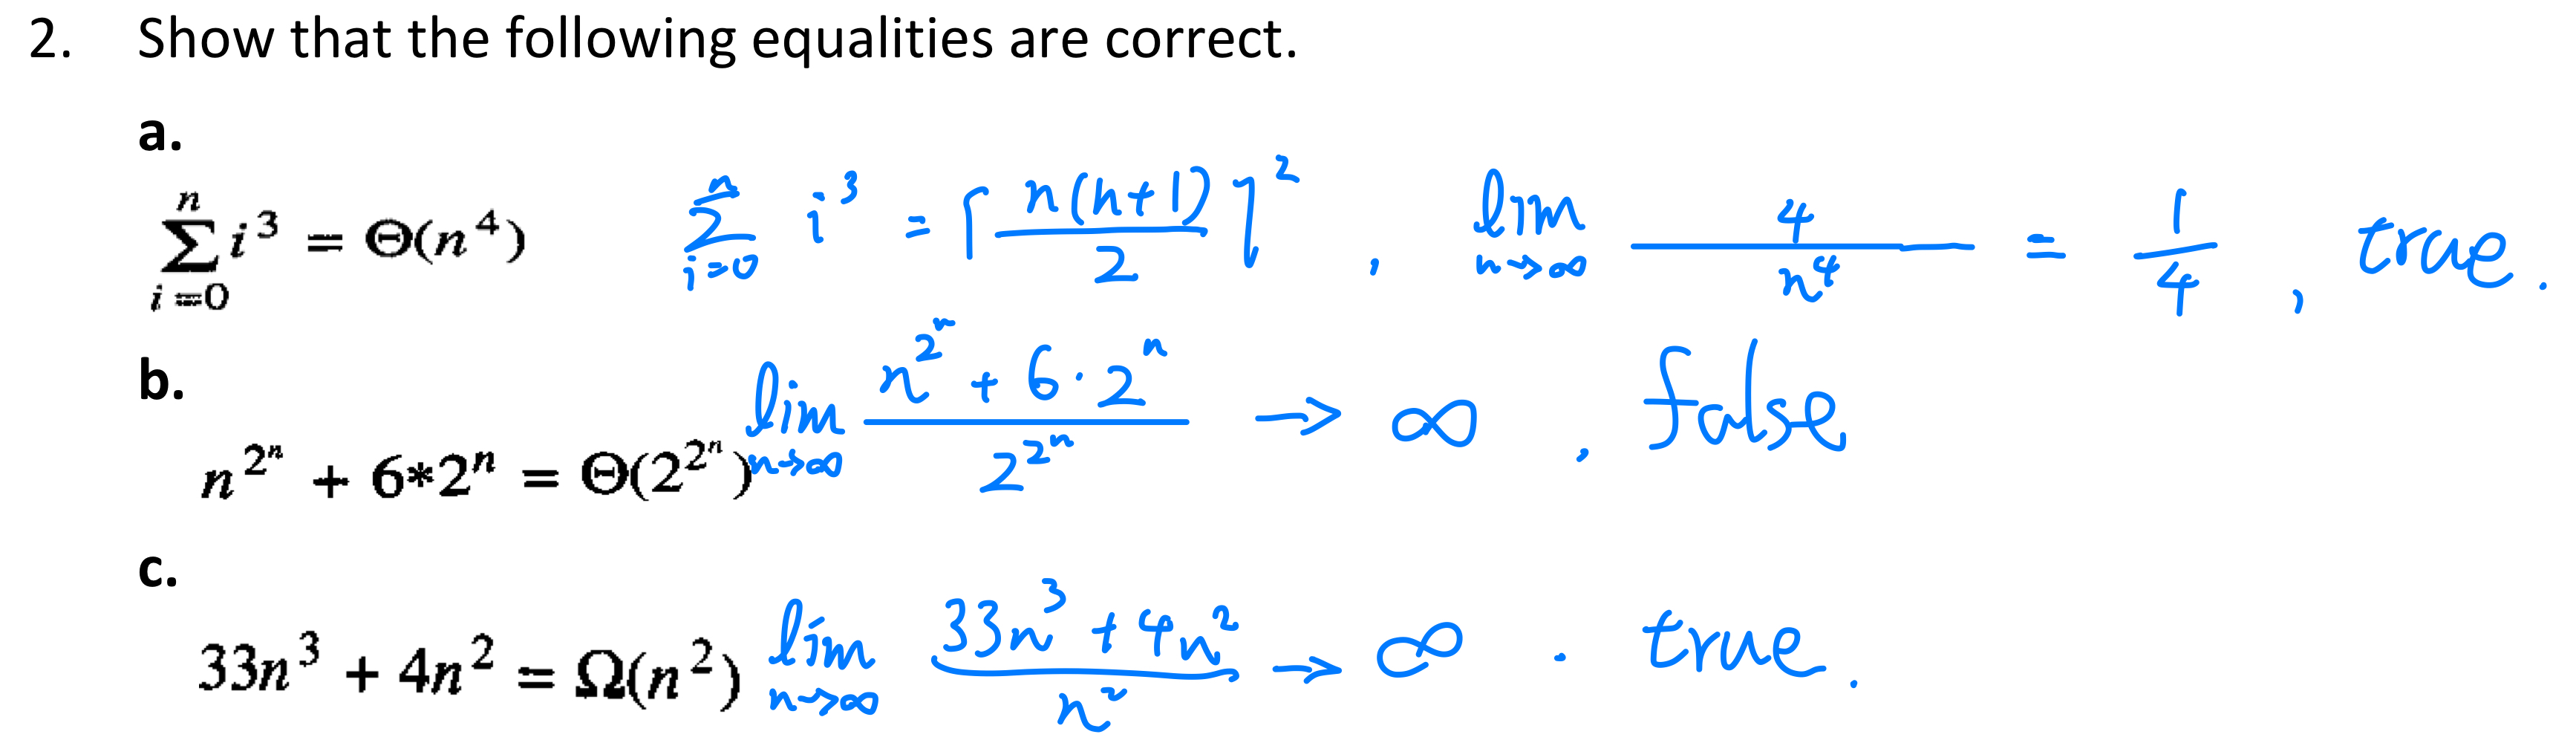 2. Show that the following equalities are correct.
a.
\sum_{i=0}^{n} i^3 = Θ(n^4) \sum_{i=0}^{n} i^3 = [\frac{n(n+1)}{2}]^2 , \lim_{n→∞} \frac{4}{n^4} = \frac{1}{4} , true.
b.
n^{2^n} + 6*2^n = Θ(2^{2^n}) \lim_{n→∞} \frac{n^{2^n} + 6·2^n}{2^{2^n}} → ∞ , false
c.
33n^3 + 4n^2 = Ω(n^2) \lim_{n→∞} \frac{33n^3 + 4n^2}{n^2} → ∞ . true.